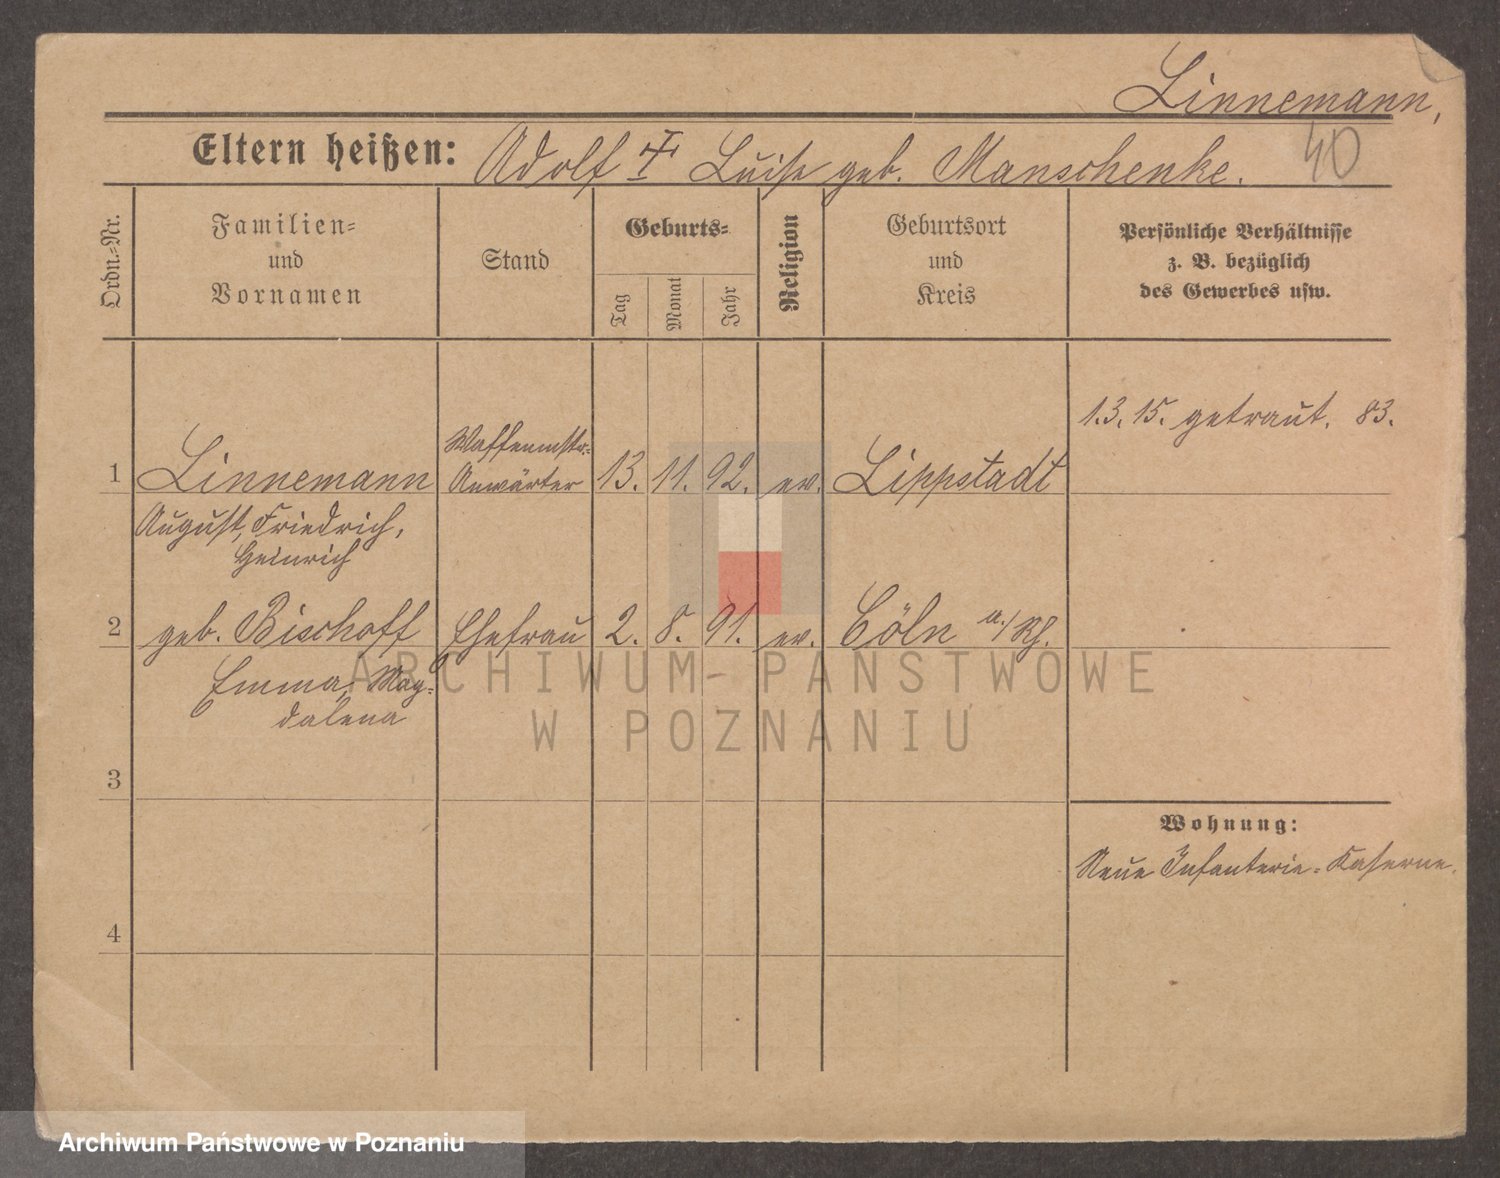 Linnemann,
40
Eltern heißen: Adolf † Luise geb. Manschenke.
Ordn.=Nr.
Familien=
und
Vornamen
Stand
Geburts=
Tag
Monat
Jahr
Religion
Geburtsort
und
Kreis
Persönliche Verhältnisse
z. B. bezüglich
des Gewerbes usw.
1.3.15. getraut. 83.
Waffenmstr.=
1 Linnemann Anwärter 13. 11. 92. ev. Lippstadt
August, Friedrich,
Heinrich
2 geb. Bischoff Ehefrau 2. 8. 91. ev. Cöln a./Rh.
Emma, Mag=
dalena
ARCHIWUM PAŃSTWOWE
W POZNANIU
3
Wohnung:
Neue Infanterie=Kaserne.
4
Archiwum Państwowe w Poznaniu